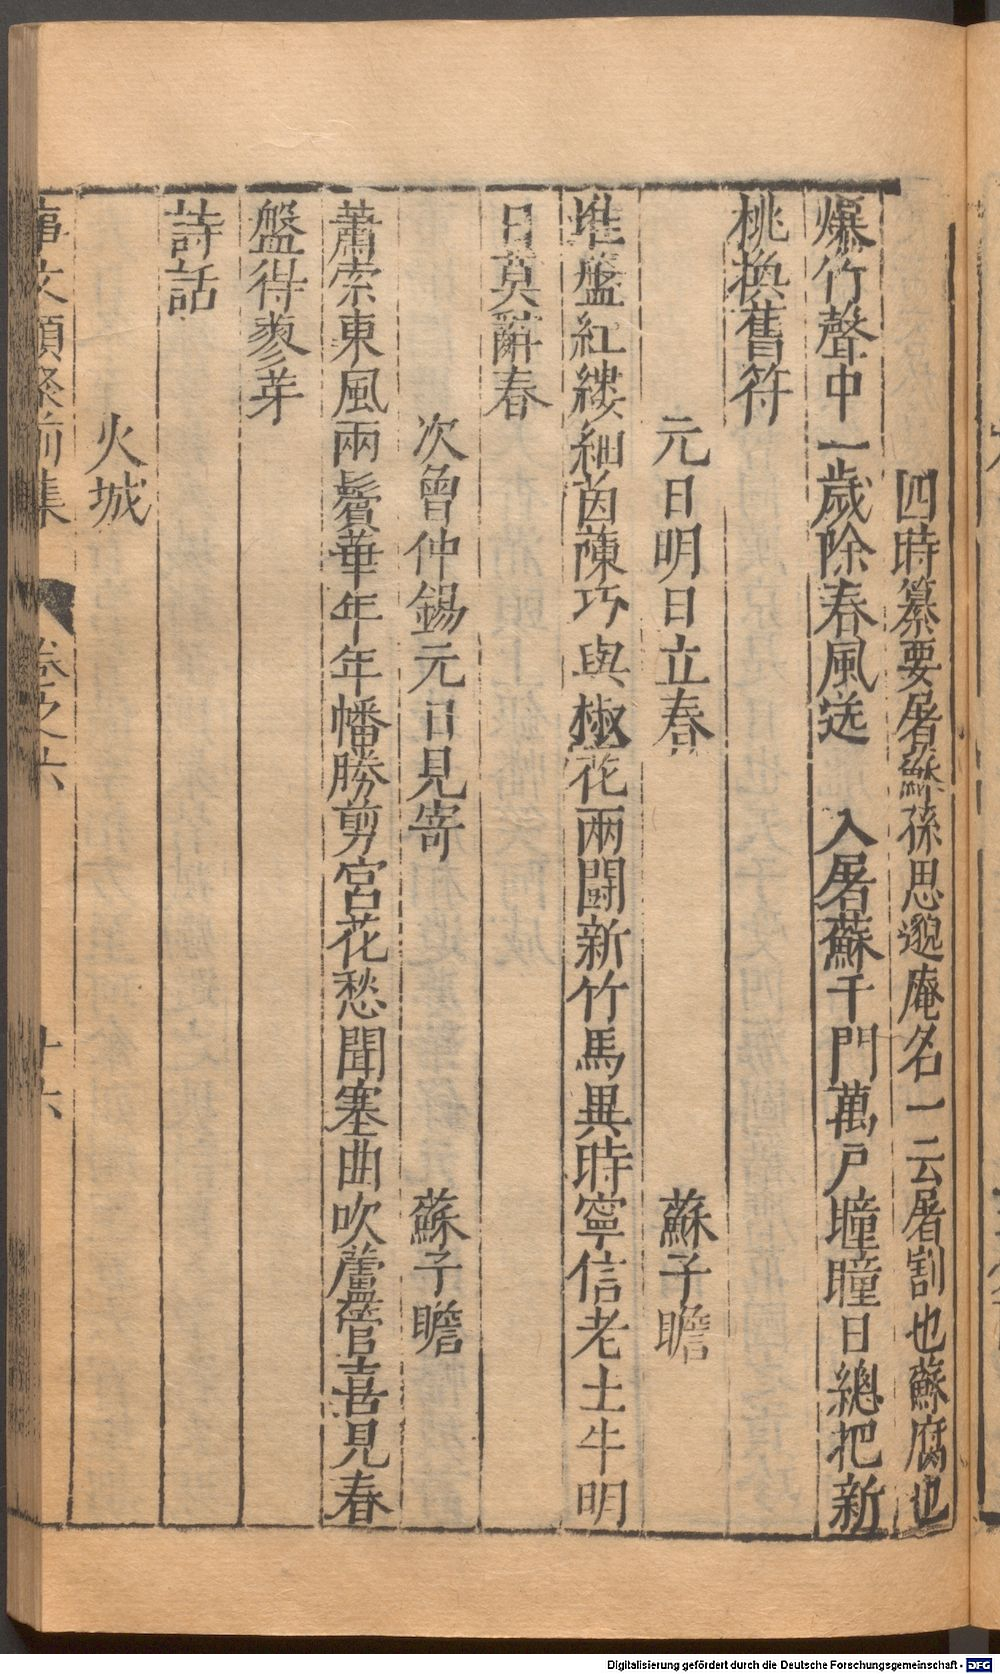 四時纂要屠蘇孫思邈庵名一云屠割也蘇腐也
爆竹聲中一歲除春風送　入屠蘇千門萬戶曈曈日總把新
桃換舊符
元日明日立春　蘇子瞻
堆盤紅縷細茵蔯巧與椒花兩鬪新竹馬異時寧信老土牛明
日莫辭春
次曾仲錫元日見寄　蘇子瞻
蕭索東風兩鬢華年年幡勝剪宮花愁聞塞曲吹蘆管喜見春
盤得蓼芽
詩話
火城
事文類聚前集　卷之六　十六
Digitalisierung gefördert durch die Deutsche Forschungsgemeinschaft - DFG